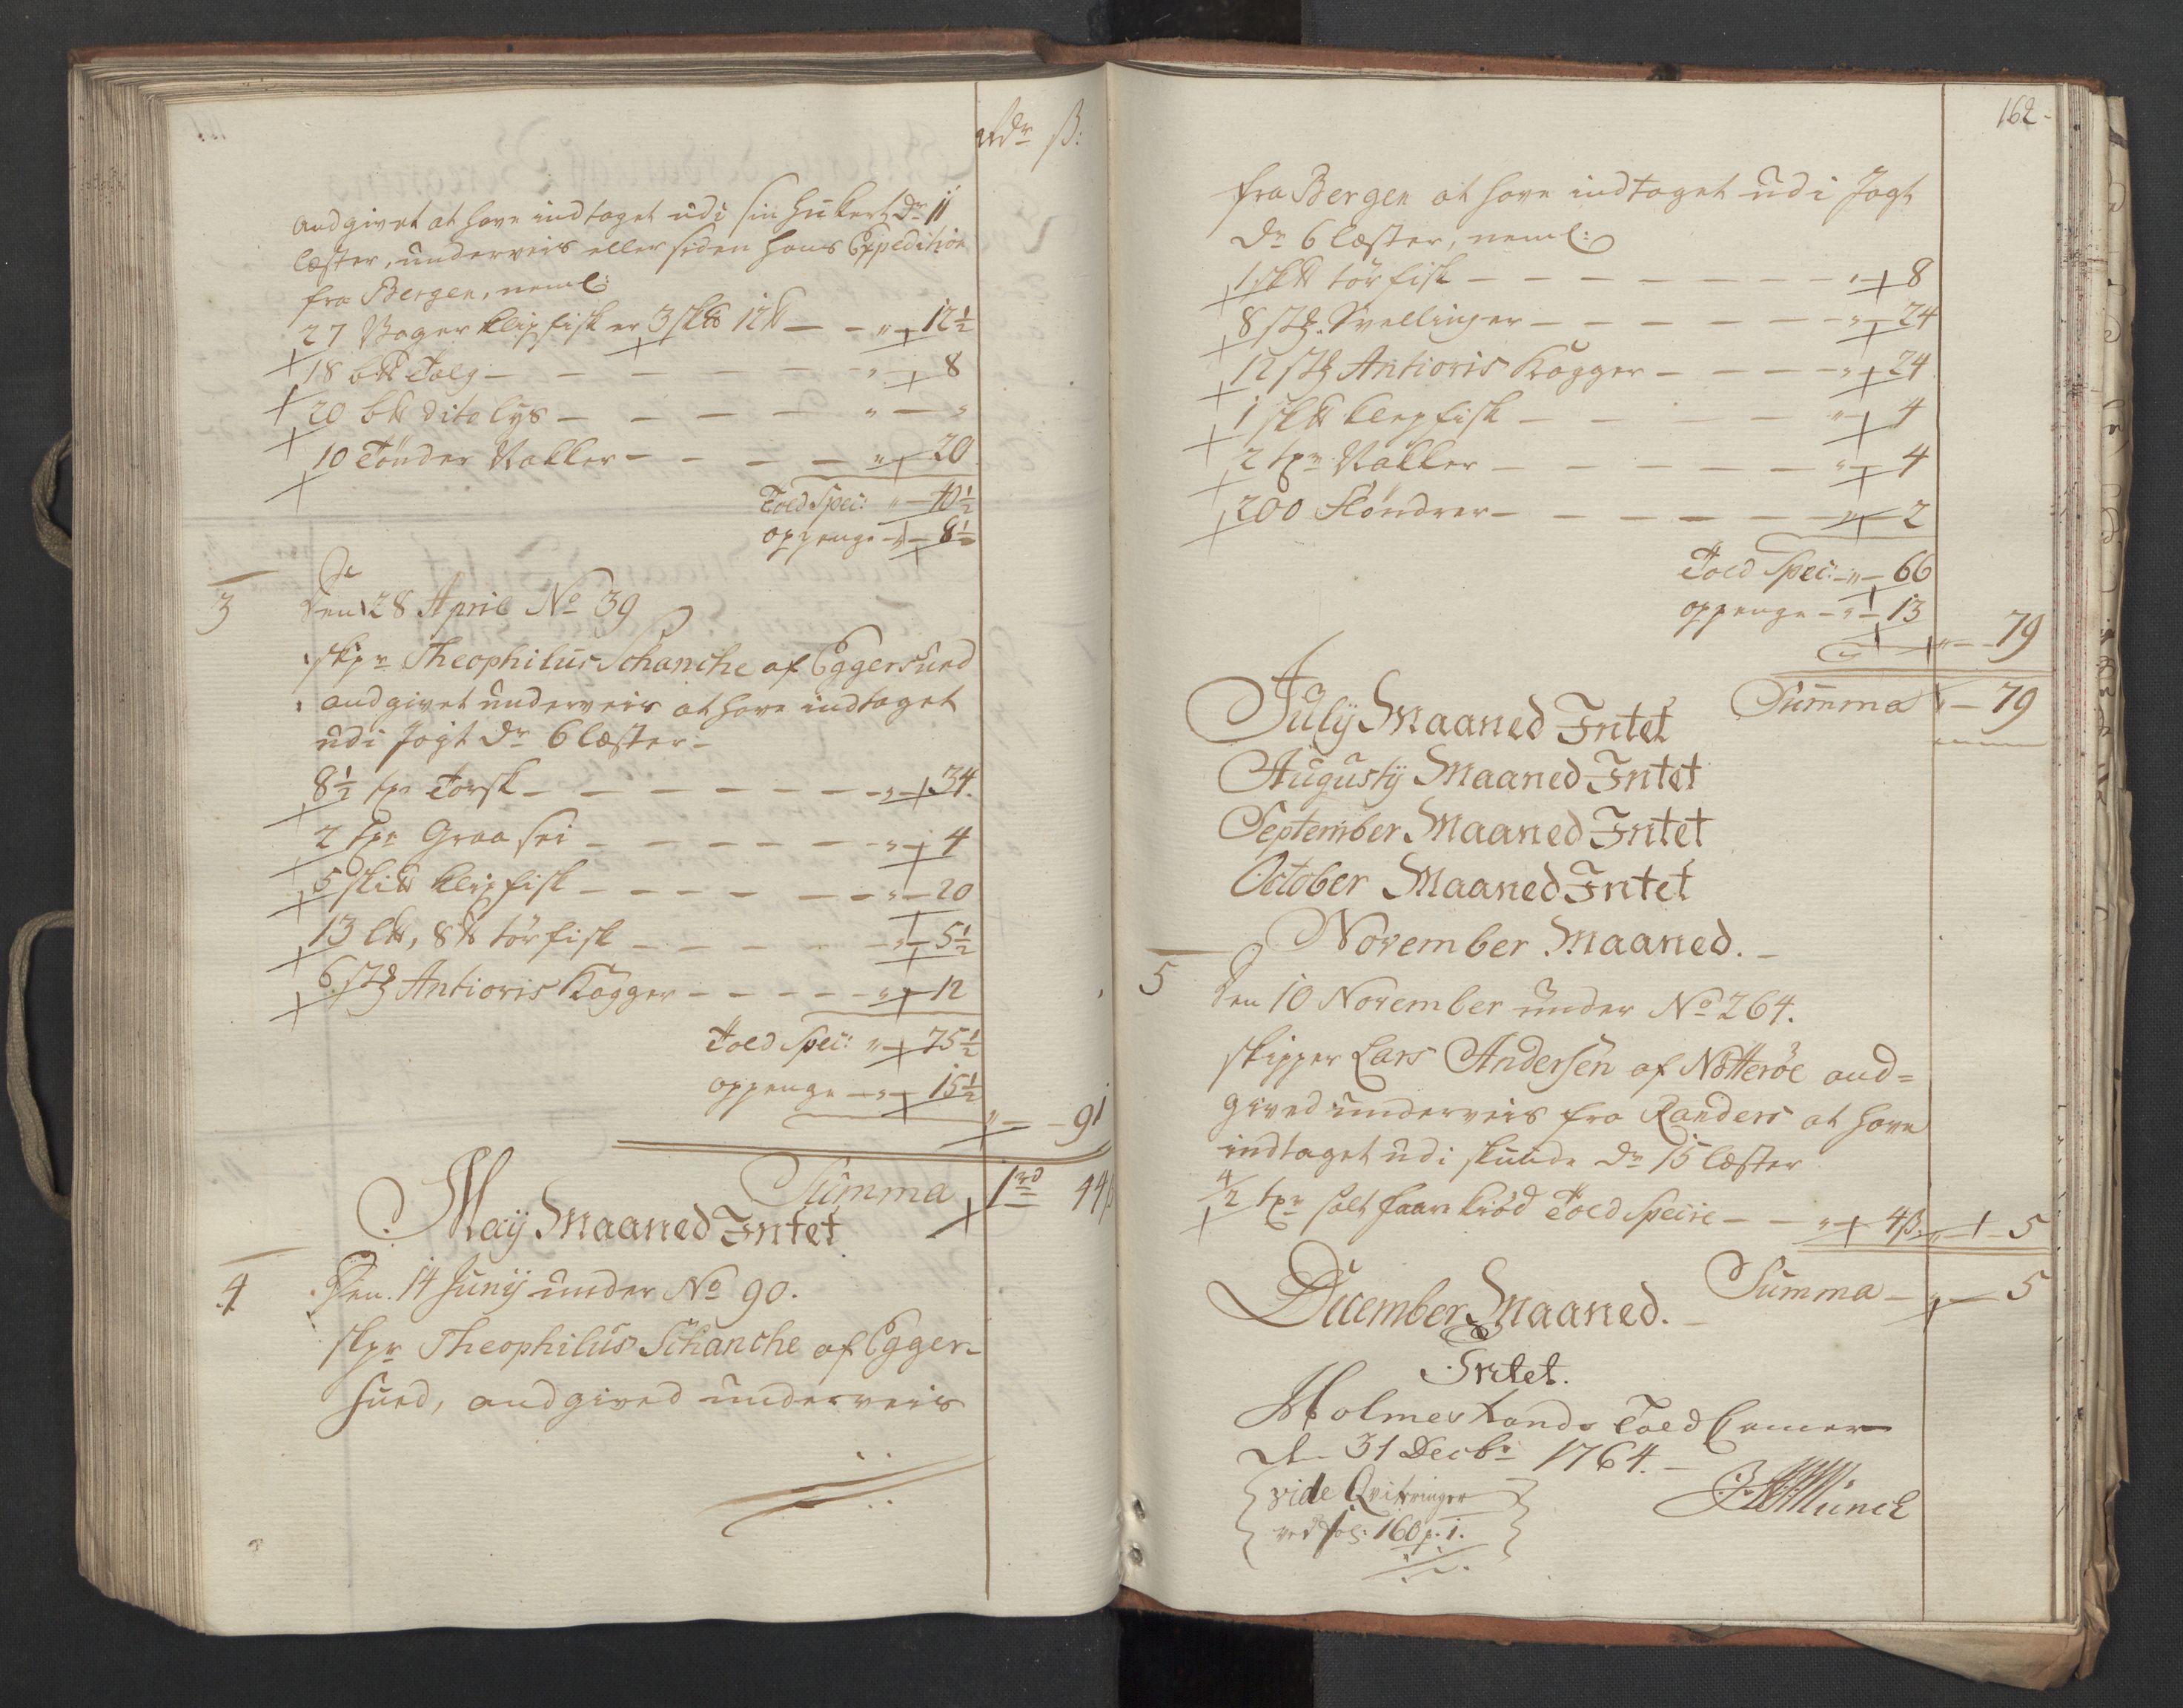 Rdr ß:
andgivet at have indtaget udi sin Hukert Dr 11
læster, underveis eller siden hans Expedition
fra Bergen, neml:
27 Voger klipfisk er 3 sk℔ 12℔ — — " — 12½
18 b℔ Talg — — — " — 8
20 b℔ dito lys — — — " — "
10 Tønder Rakler — — — " — 20
Told Speci: " — 40½
oppenge — " — 8½
3
Den 28 April No 39
skpr Theophilus Schanche af Eggersund
andgivet underveis at have indtaget
udi Jagt Dr 6 læster —
8½ tpr Torsk — — — " — 34.
2 tpr Graa sei — — — " — 4
5 ski℔ klipfisk — — — " — 20
13 l℔, 8 ℔ tørfisk — — — " — 5½
6 stk Antioris Kagger — — — " — 12
Told Speci: " — 75½
oppenge — " — 15½
" — 91
Summa 1rd 44ß
Maÿ Maaned Intet
4
Den 14 Junÿ under No 90.
skpr Theophilus Schanche af Egger-
sund, andgived underveis
162.
fra Bergen at have indtaget udi Jagt
Dr 6 læster, neml:
1 sk℔ tørfisk — — — " — 8
8 stk. Svellinger — — — " — 24
12 stk Antioris Kagger — — — " — 24
1 sk℔ klepfisk — — — " — 4
2 tpr Rakler — — — " — 4
200 Fløndrer — — — " — 2
Told Speci: — " — 66
oppenge — " — 13
" — 79
Summa " — 79
Julÿ Maaned Intet
Augustÿ Maaned Intet
September Maaned Intet
October Maaned Intet
November Maaned.
5
Den 10 November under No 264.
skipper Lars Andersen af Nøtterøe and=
gived underveis fra Randers at have
indtaget udi skude Dr 15 læster
4/2 tpr salt faare kiød Told Specie — — " — 4ß. " — 5
Summa — " — 5
December Maaned.
Intet.
Holmestrands Told Camer
d. 31 Decbr 1764.
Münch
vide Qviteringer
ved fol: 160 p. 1.